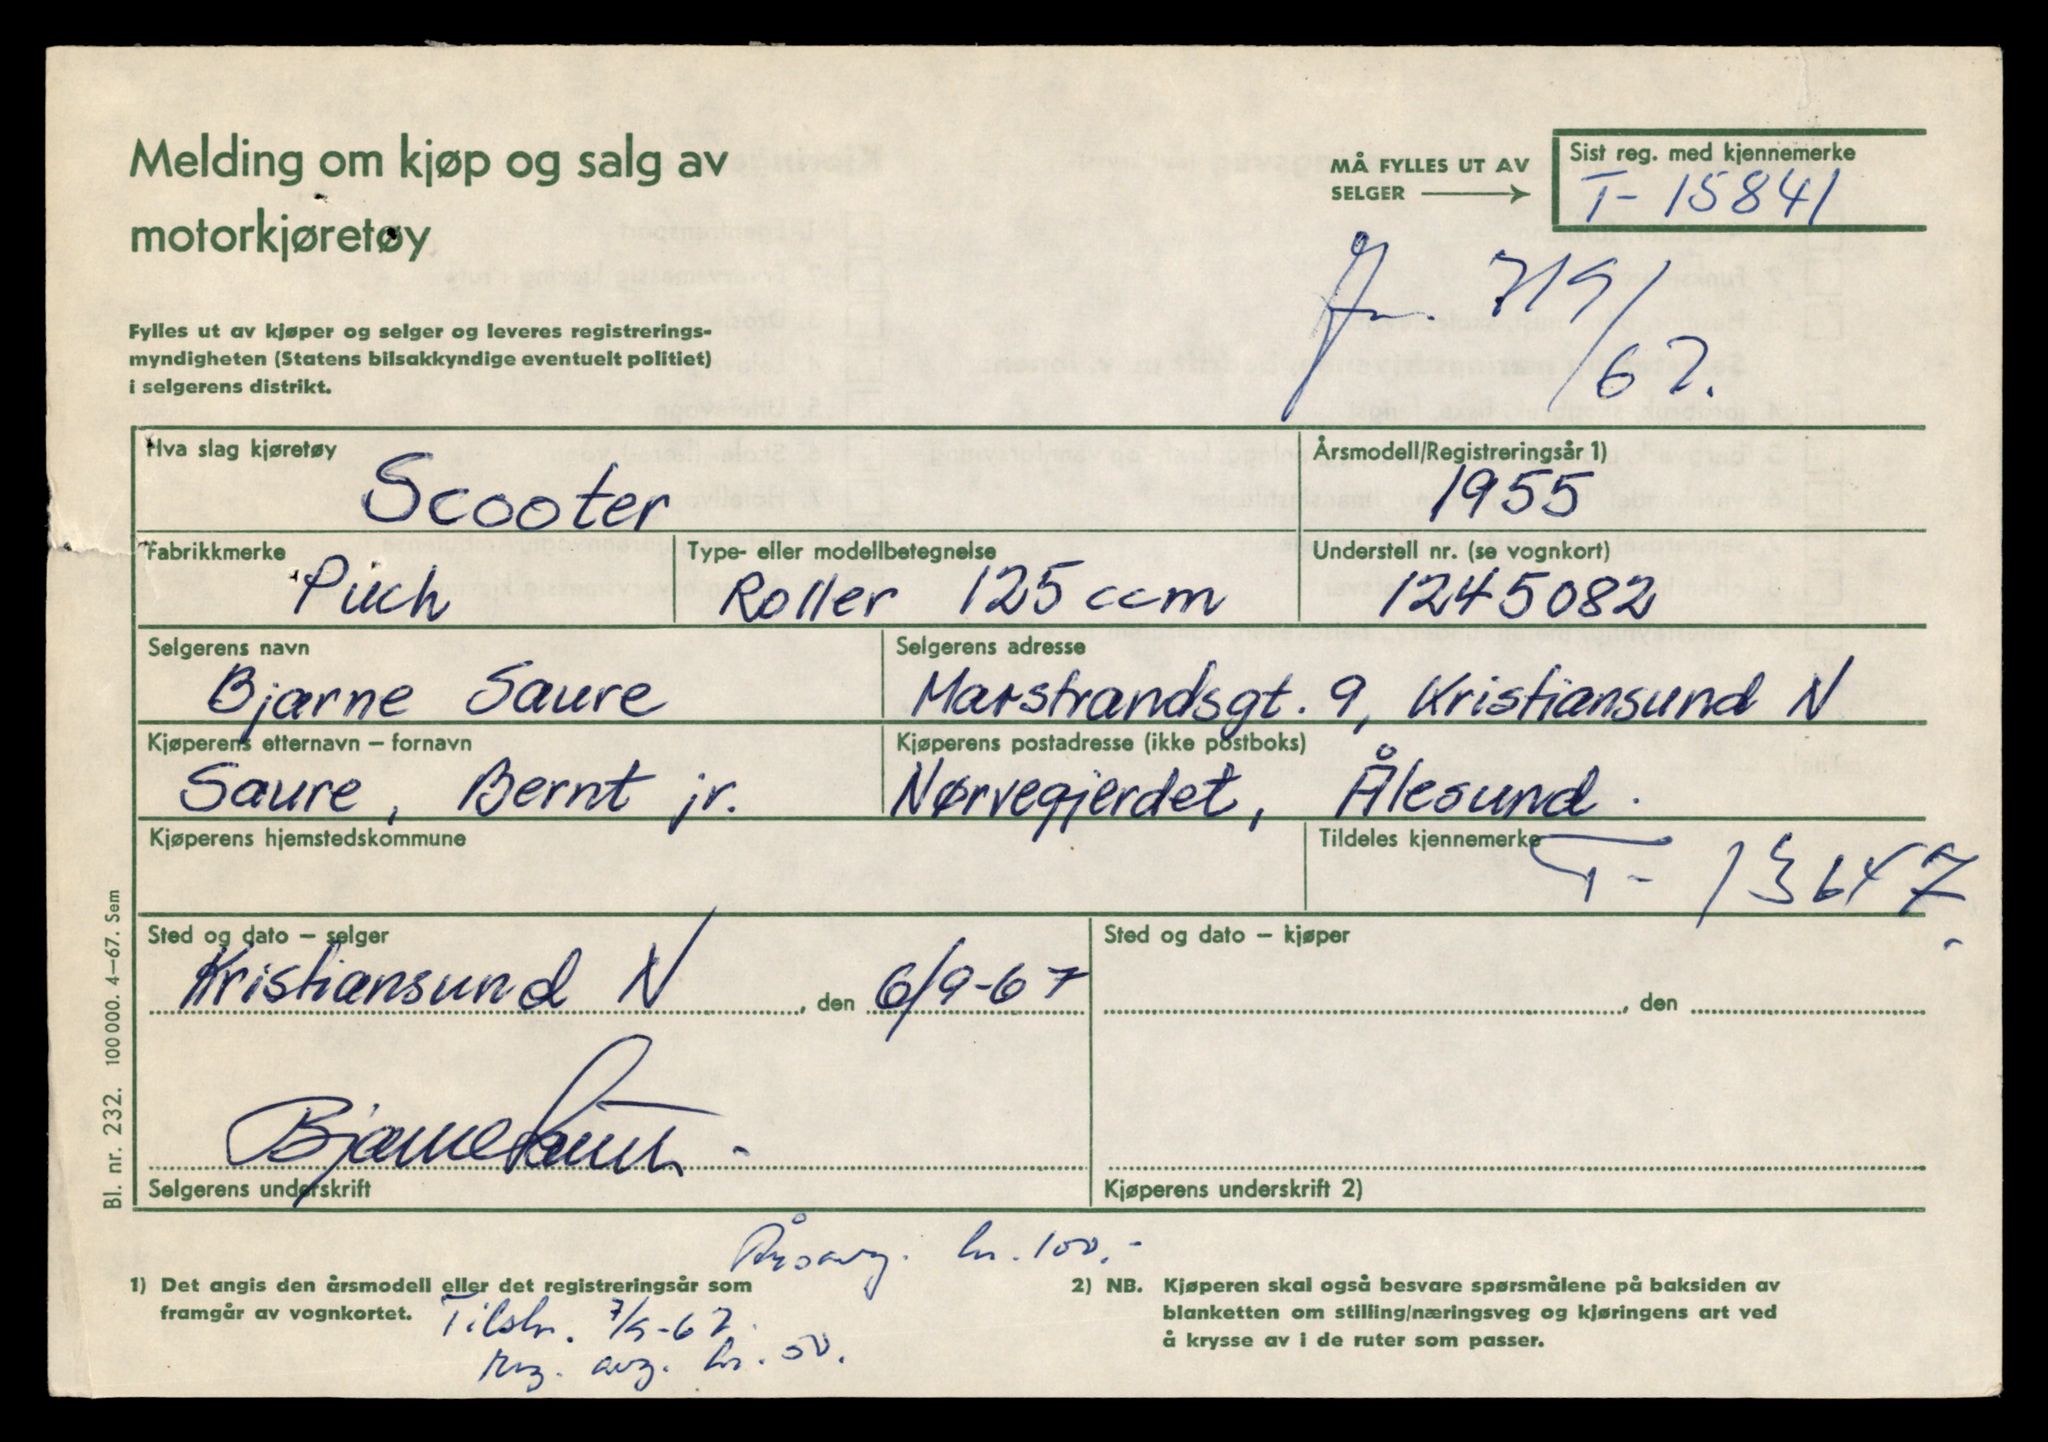 Melding om kjøp og salg av
motorkjøretøy
MÅ FYLLES UT AV
SELGER
Sist reg. med kjennemerke
T- 15841
Jn. 719/67.
Fylles ut av kjøper og selger og leveres registrerings-
myndigheten (Statens bilsakkyndige eventuelt politiet)
i selgerens distrikt.
Hva slag kjøretøy
Scooter
Årsmodell/Registreringsår 1)
1955
Fabrikkmerke
Puch
Type- eller modellbetegnelse
Roller 125 ccm
Understell nr. (se vognkort)
1245082
Selgerens navn
Bjarne Saure
Selgerens adresse
Marstrandsgt. 9, Kristiansund N
Kjøperens etternavn – fornavn
Saure, Bernt jr.
Kjøperens postadresse (ikke postboks)
Nørvegjerdet, Ålesund.
Kjøperens hjemstedskommune
Tildeles kjennemerke
T- 13647.
Sted og dato – selger
Kristiansund N, den 6/9-67
Sted og dato – kjøper
, den
Bjarne Saure
Selgerens underskrift
Kjøperens underskrift 2)
Årsavg. kr. 100.-
1) Det angis den årsmodell eller det registreringsår som
framgår av vognkortet.
Tilskr. 7/9-67.
reg. avg. kr. 50.
2) NB. Kjøperen skal også besvare spørsmålene på baksiden av
blanketten om stilling/næringsveg og kjøringens art ved
å krysse av i de ruter som passer.
Bl. nr. 232. 100 000. 4–67. Sem